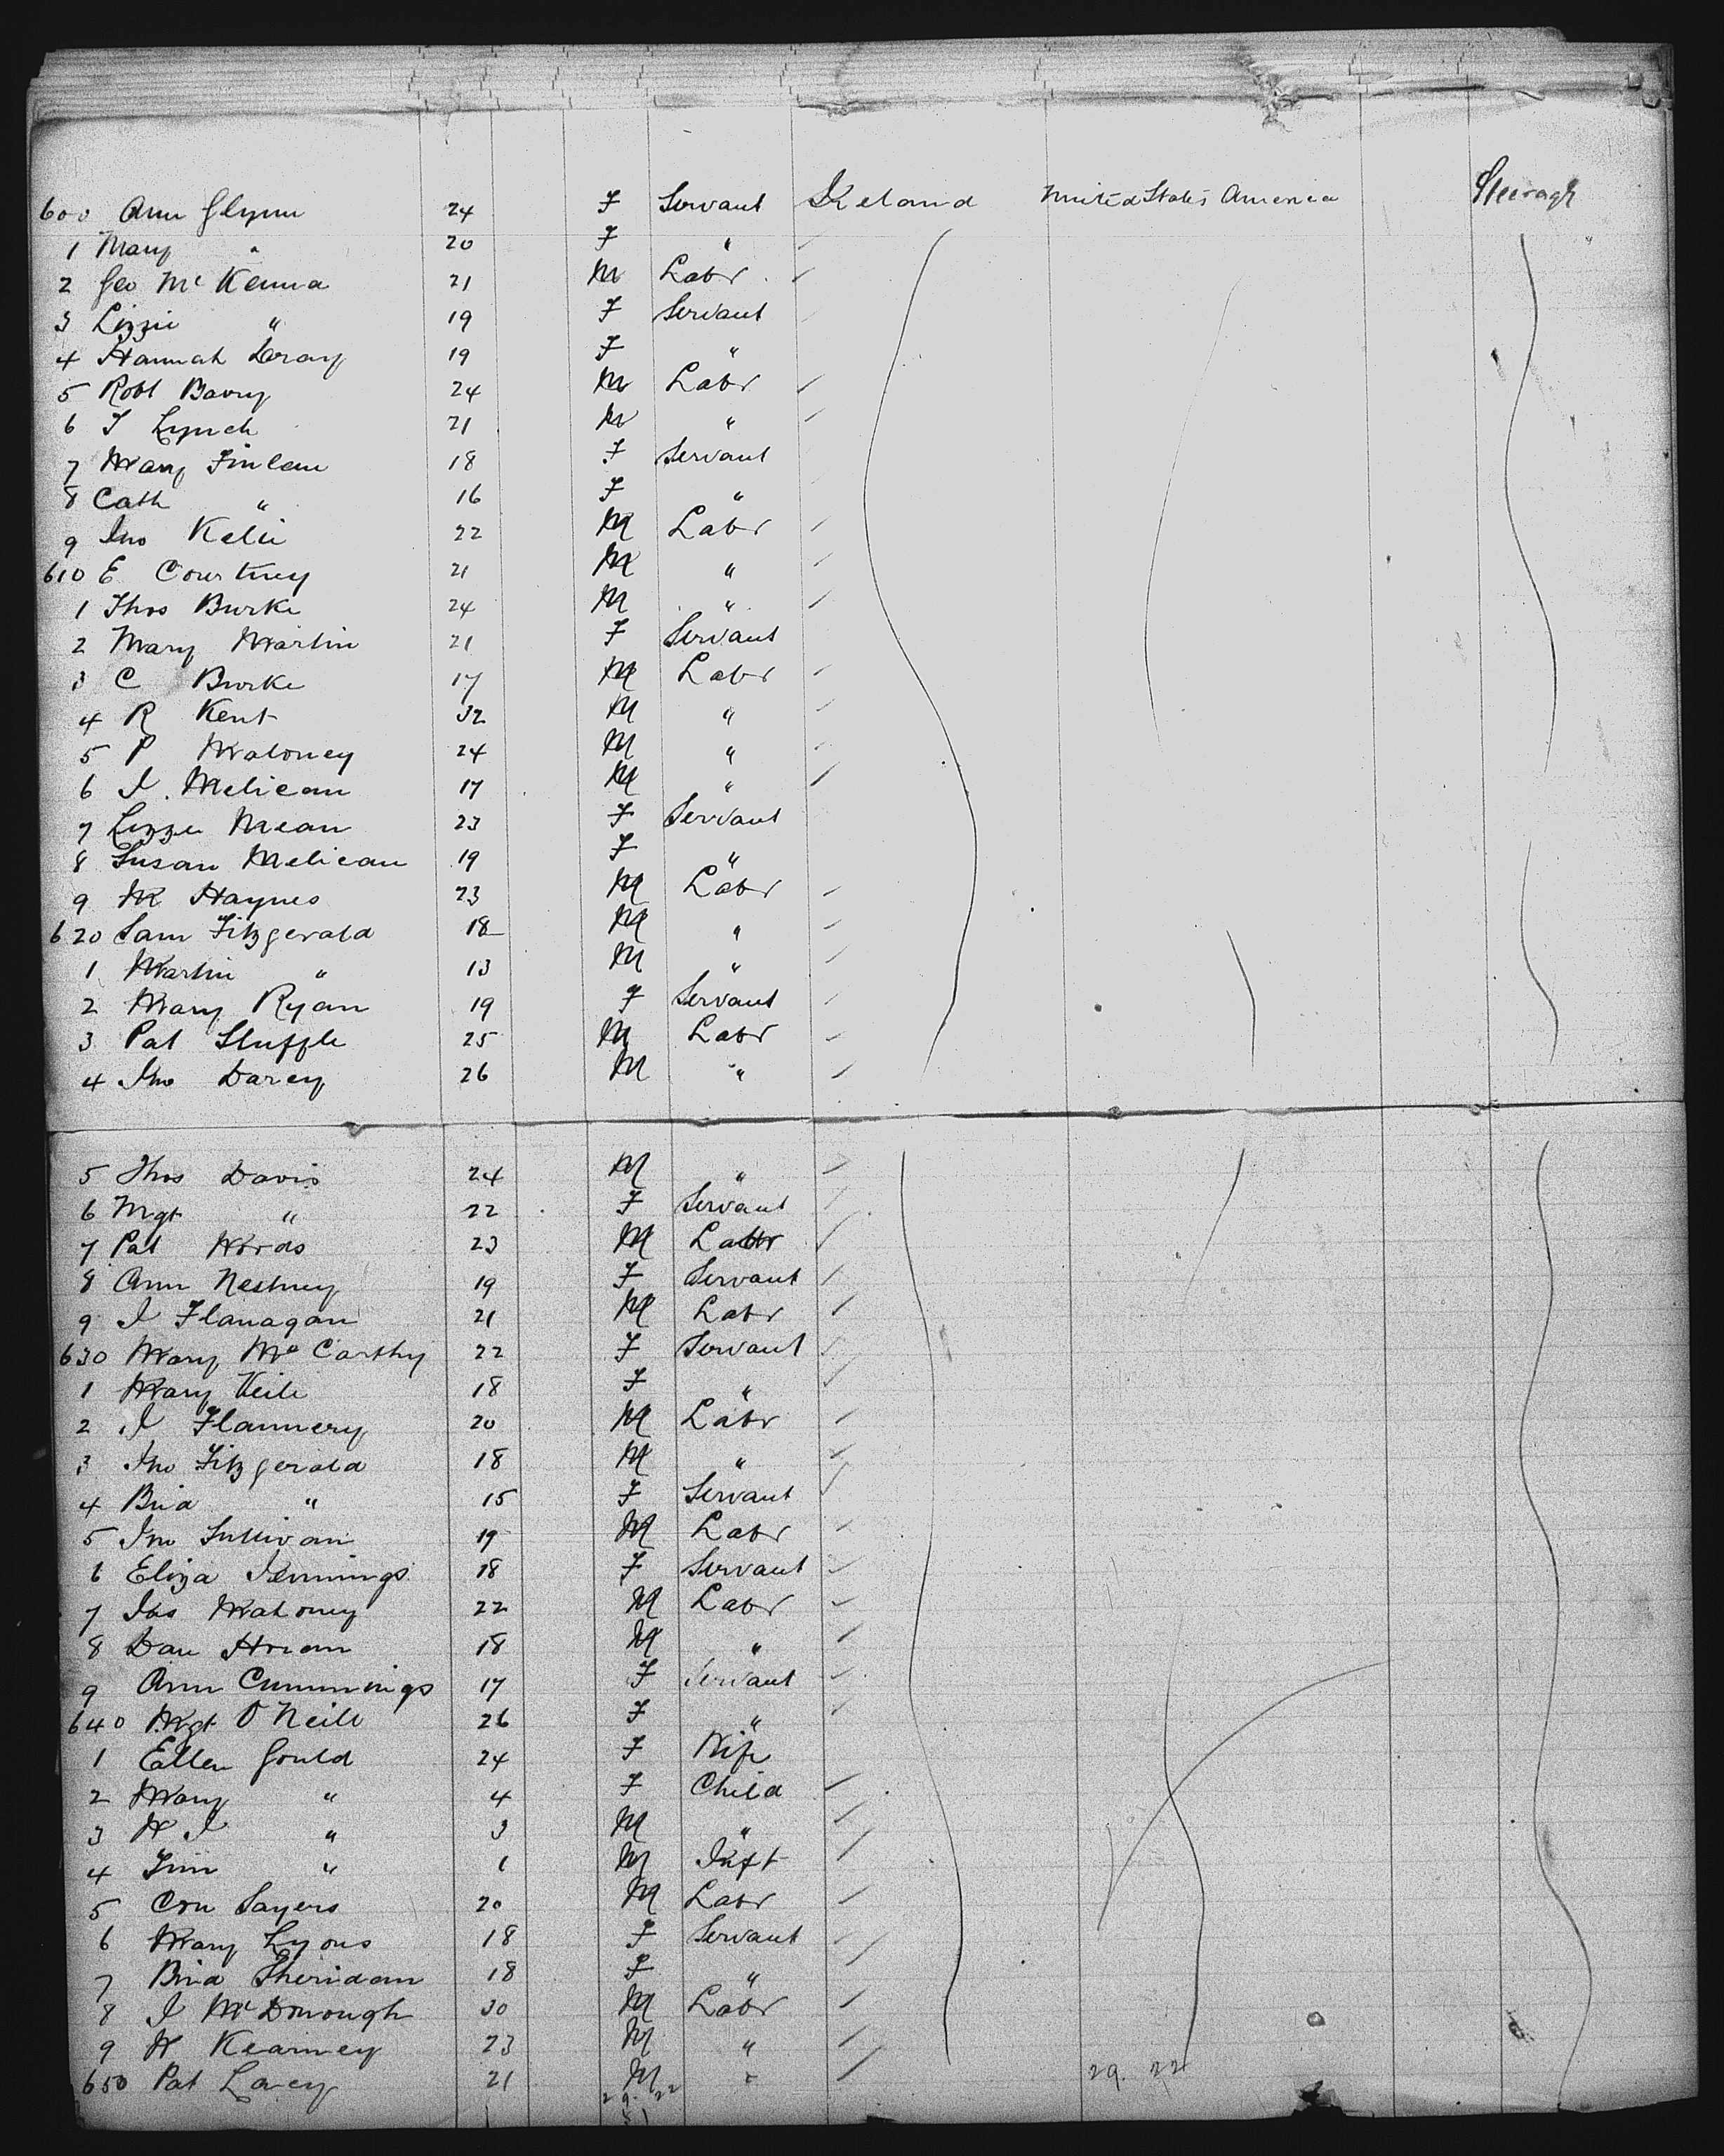 600 Ann Glynn 24 F Servant Ireland United States America Steerage
1 Mary " 20 F "
2 Geo McKenna 21 M Labr
3 Lizzie " 19 F Servant
4 Hannah 19 F "
5 Robt Barry 24 M Labr
6 J Lynch 21 M "
7 Mary Finlan 18 F Servant
8 Cath " 16 F "
9 Jno 22 M Labr
610 E Courtney 21 M "
1 Thos Burke 24 M "
2 Mary Martin 21 F Servant
3 C Burke 17 M Labr
4 R Kent 32 M "
5 P Mahoney 24 M "
6 J. Melican 17 M "
7 Lizzie Mean 23 F Servant
8 Susan Melican 19 F "
9 M Haynes 23 M Labr
620 Sam Fitzgerald 18 M "
1 Martin " 13 M "
2 Mary Ryan 19 F Servant
3 Pat 25 M Labr
4 Jno Darcy 26 M "
5 Thos Davis 24 M "
6 Mgt " 22 F Servant
7 Pat Woods 23 M Labr
8 Ann 19 F Servant
9 J Flanagan 21 M Labr
630 Mary McCarthy 22 F Servant
1 Mary 18 F "
2 J Flannery 20 M Labr
3 Jno Fitzgerald 18 M "
4 Brid " 15 F Servant
5 Jno Sullivan 19 M Labr
6 Eliza Jennings 18 F Servant
7 Jas Mahoney 22 M Labr
8 Dan 18 M "
9 Ann Cummings 17 F Servant
640 Mgt O'Neill 26 F "
1 Ellen Gould 24 F Wife
2 Mary " 4 F Child
3 W J " 3 M "
4 Tim " 1 M Inft
5 Con Sayers 20 M Labr
6 Mary Lyons 18 F Servant
7 Brid Sheridan 18 F "
8 J McDonough 30 M Labr
9 W Kearney 23 M "
650 Pat Lacey 21 M "
29. 22 29. 22
51